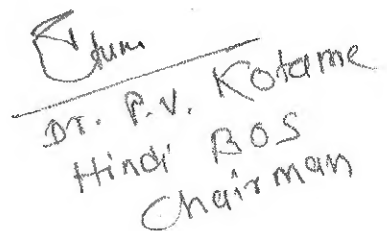 Dr. P.V. Kotame
Hindi BOS
Chairman